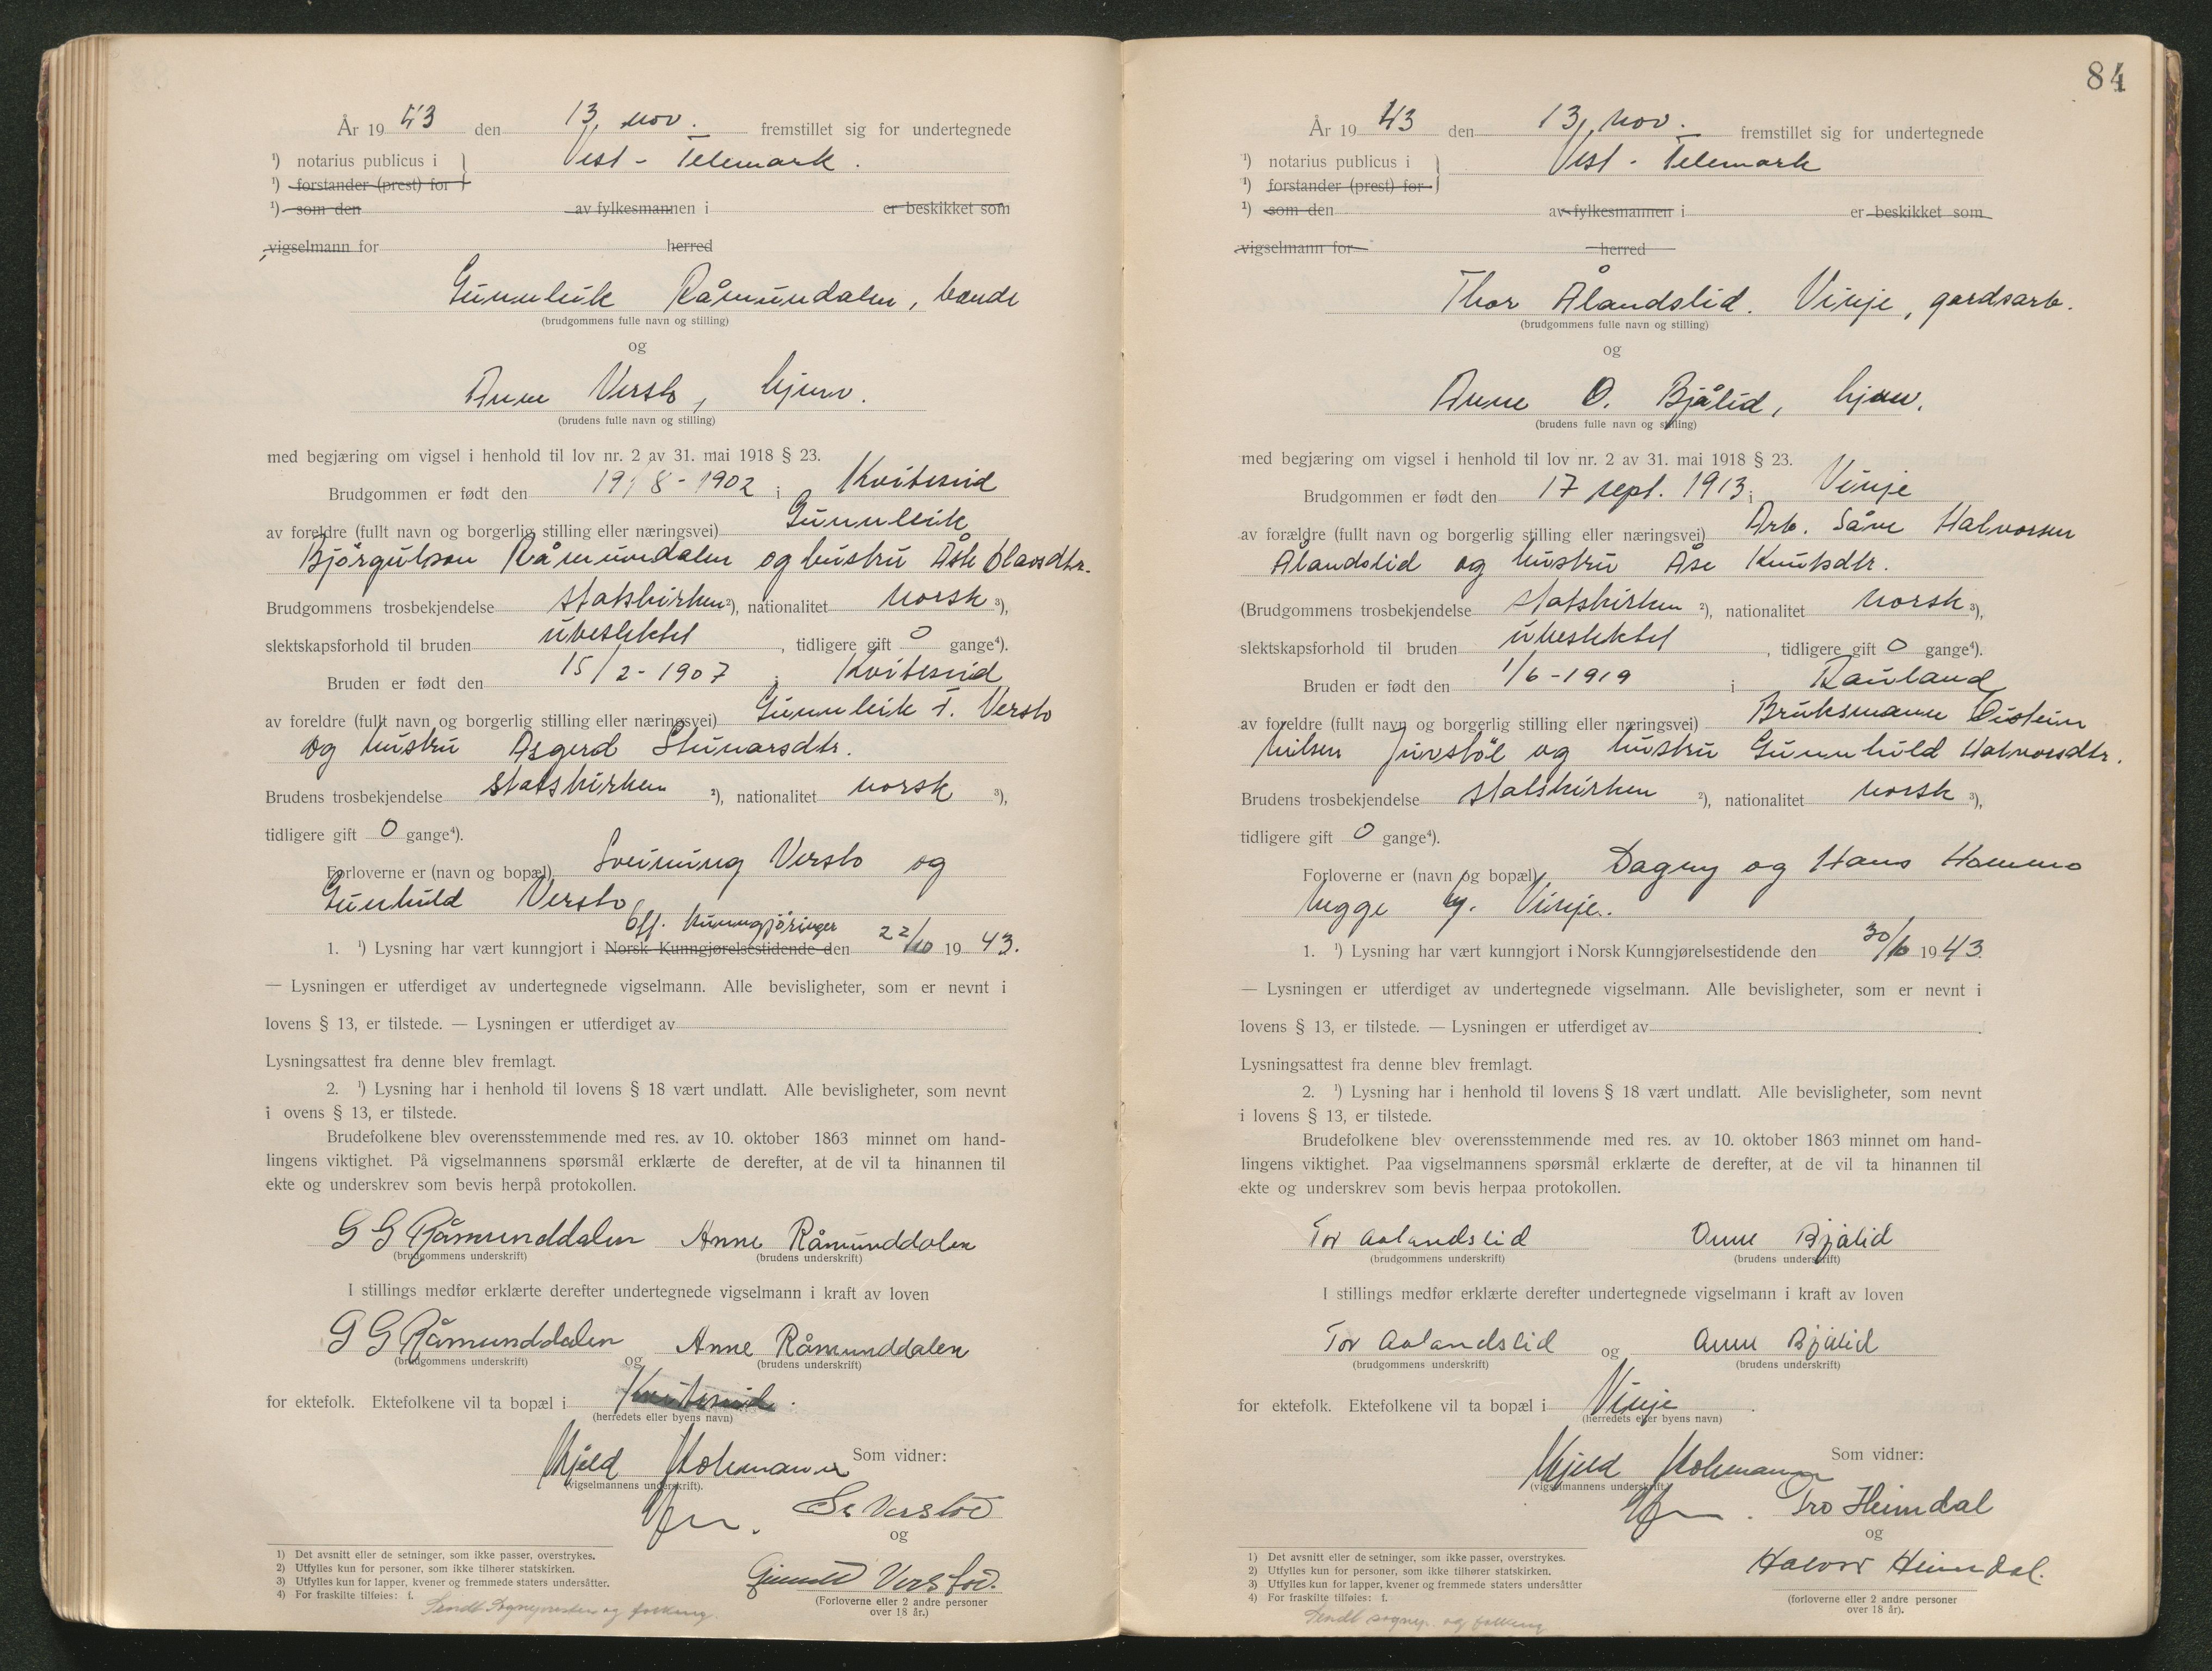 År 19 43 den 13. nov. fremstillet sig for undertegnede
¹) notarius publicus i } Vest - Telemark.
¹) forstander (prest) for
¹) som den av fylkesmannen i er beskikket som
vigselmann for herred
Gunnleik Råmundalen, bonde
(brudgommens fulle navn og stilling)
og
Anne Versto, hjem.
(brudens fulle navn og stilling)
med begjæring om vigsel i henhold til lov nr. 2 av 31. mai 1918 § 23.
Brudgommen er født den 19/8 - 1902 i Kviteseid
av foreldre (fullt navn og borgerlig stilling eller næringsvei) Gunnleik
Bjørgulson Råmundalen og hustru Åste Olavsdtr.
Brudgommens trosbekjendelse statskirken ²), nationalitet norsk ³),
slektskapsforhold til bruden ubeslektet, tidligere gift 0 gange⁴).
Bruden er født den 15/2 - 1907 i Kviteseid
av foreldre (fullt navn og borgerlig stilling eller næringsvei) Gunnleik T. Versto
og hustru Asgerd Steinarsdtr.
Brudens trosbekjendelse statskirken ²), nationalitet norsk ³),
tidligere gift 0 gange⁴).
Forloverne er (navn og bopæl) Sveinung Versto og
Gunhild Versto
off. kunngjøringer
1. ¹) Lysning har vært kunngjort i Norsk Kunngjørelsestidende den 22/10 19 43.
— Lysningen er utferdiget av undertegnede vigselmann. Alle bevisligheter, som er nevnt i
lovens § 13, er tilstede. — Lysningen er utferdiget av
Lysningsattest fra denne blev fremlagt.
2. ¹) Lysning har i henhold til lovens § 18 vært undlatt. Alle bevisligheter, som nevnt
i ovens § 13, er tilstede.
Brudefolkene blev overensstemmende med res. av 10. oktober 1863 minnet om hand-
lingens viktighet. På vigselmannens spørsmål erklærte de derefter, at de vil ta hinannen til
ekte og underskrev som bevis herpå protokollen.
G G Råmunddalen Anne Råmunddalen
(brudgommens underskrift) (brudens underskrift)
I stillings medfør erklærte derefter undertegnede vigselmann i kraft av loven
G G Råmunddalen og Anne Råmunddalen
(brudgommens underskrift) (brudens underskrift)
for ektefolk. Ektefolkene vil ta bopæl i Kviteseid.
(herredets eller byens navn)
Kjeld Som vidner:
(vigselmannens underskrift).
Sv Verstod
og
Gunnild Verstod.
(Forloverne eller 2 andre personer
over 18 år.)
1) Det avsnitt eller de setninger, som ikke passer, overstrykes.
2) Utfylles kun for personer, som ikke tilhører statskirken.
3) Utfylles kun for lapper, kvener og fremmede staters undersåtter.
4) For fraskilte tilføies: f.
Sendt Sognepresten og folkereg.
84
År 19 43 den 13. nov. fremstillet sig for undertegnede
¹) notarius publicus i } Vest - Telemark
¹) forstander (prest) for
¹) som den av fylkesmannen i er beskikket som
vigselmann for herred
Thor Ålandslid. Vinje, gardsarb.
(brudgommens fulle navn og stilling)
og
Anne O. Bjålid, hjem.
(brudens fulle navn og stilling)
med begjæring om vigsel i henhold til lov nr. 2 av 31. mai 1918 § 23.
Brudgommen er født den 17 sept. 1913 i Vinje
av forældre (fullt navn og borgerlig stilling eller næringsvei) Arb. Såve Halvorsen
Ålandslid og hustru Åse Knutsdtr.
(Brudgommens trosbekjendelse statskirken ²), nationalitet norsk ³),
slektskapsforhold til bruden ubeslektet, tidligere gift 0 gange⁴).
Bruden er født den 1/6 - 1919 i Rauland
av foreldre (fullt navn og borgerlig stilling eller næringsvei) Bruksmann Øistein
Nilsen Juvstøl og hustru Gunnhild Halvorsdtr.
Brudens trosbekjendelse statskirken ²), nationalitet norsk ³),
tidligere gift 0 gange⁴).
Forloverne er (navn og bopæl) Dagny og Hans Hommo
begge Vinje.
1. ¹) Lysning har vært kunngjort i Norsk Kunngjørelsestidende den 30/10 19 43.
— Lysningen er utferdiget av undertegnede vigselmann. Alle bevisligheter, som er nevnt i
lovens § 13, er tilstede. — Lysningen er utferdiget av
Lysningsattest fra denne blev fremlagt.
2. ¹) Lysning har i henhold til lovens § 18 vært undlatt. Alle bevisligheter, som nevnt
i lovens § 13, er tilstede.
Brudefolkene blev overensstemmende med res. av 10. oktober 1863 minnet om hand-
lingens viktighet. Paa vigselmannens spørsmål erklærte de derefter, at de vil ta hinannen til
ekte og underskrev som bevis herpaa protokollen.
Tor Aalandslid Anne Bjålid
(brudgommens underskrift) (brudens underskrift)
I stillings medfør erklærte derefter undertegnede vigselmann i kraft av loven
Tor Aalandslid og Anne Bjålid
(brudgommens underskrift) (brudens underskrift)
for ektefolk. Ektefolkene vil ta bopæl i Vinje.
(herredets eller byens navn)
Kjeld Som vidner:
(vigselmannens underskrift).
Tro Heimdal
og
Halvor Heimdal.
(forloverne eller 2 andre personer
over 18 år).
1) Det avsnitt eller de setninger, som ikke passer, overstrykes.
2) Utfylles kun for personer, som ikke tilhører statskirken.
3) Utfylles kun for lapper, kvener og fremmede staters undersåtter
4) For fraskilte tilføies: f.
Sendt sognep. og folkereg